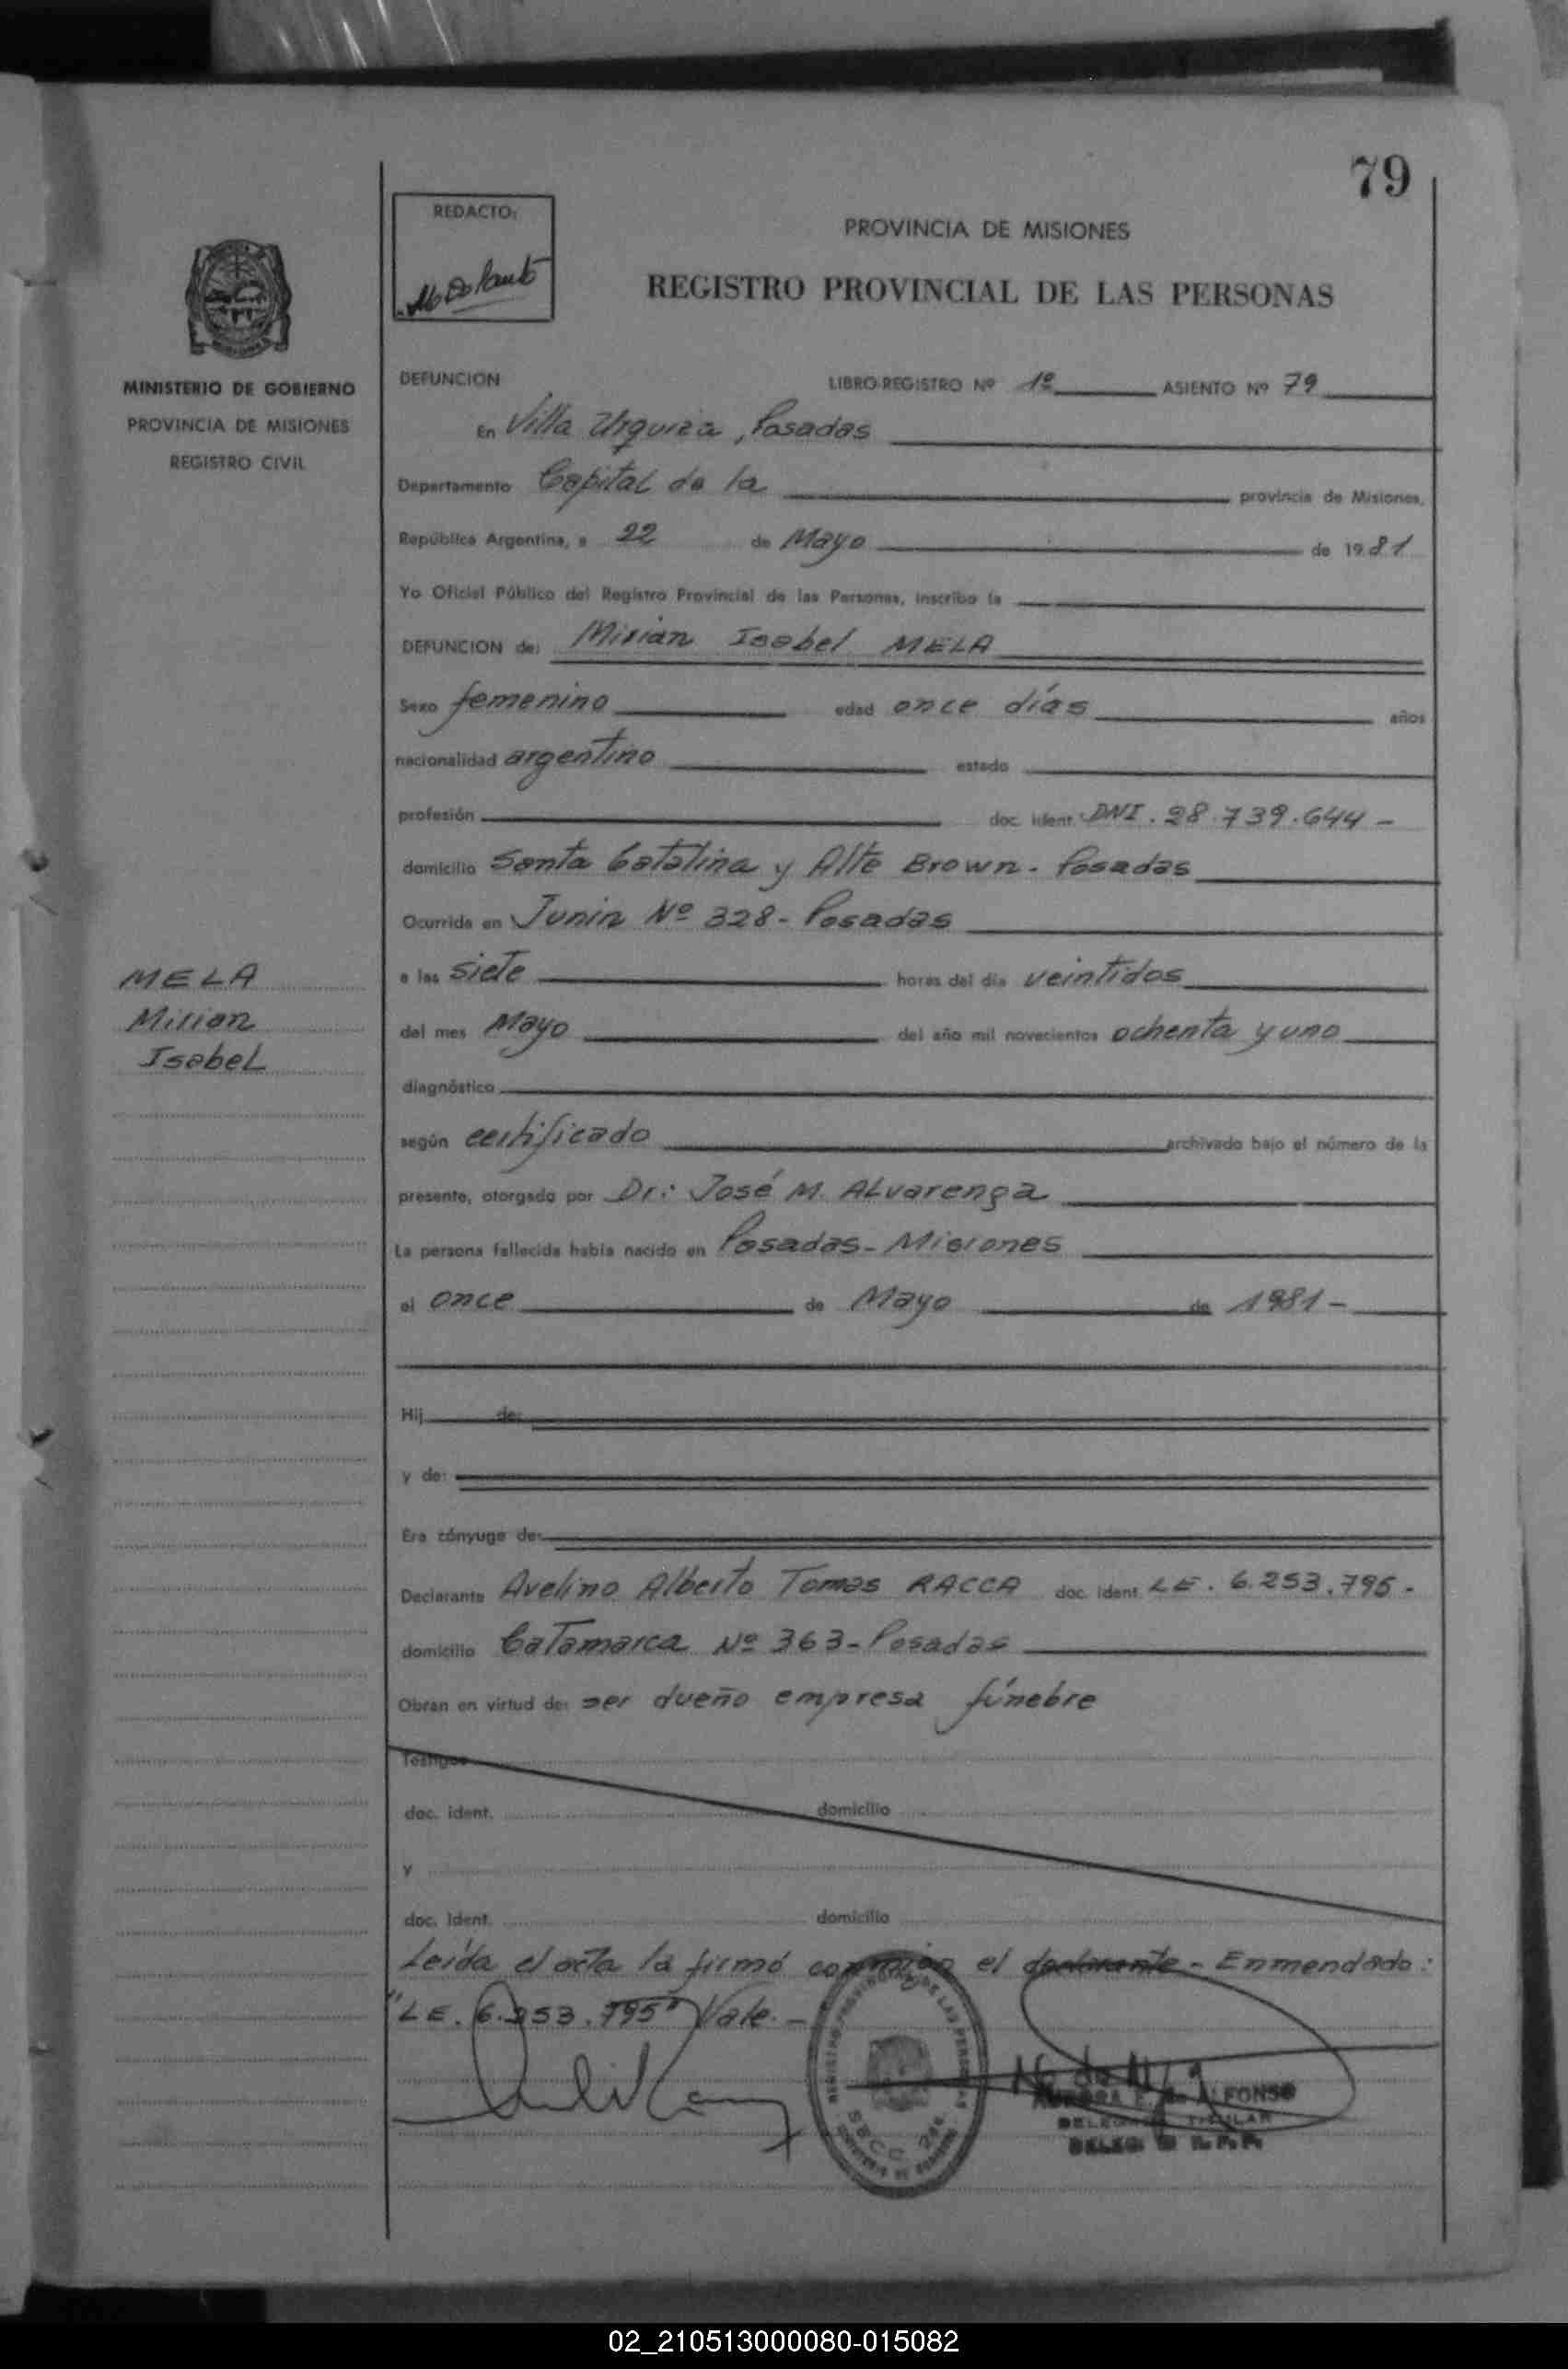 79
REDACTO:
PROVINCIA DE MISIONES
REGISTRO PROVINCIAL DE LAS PERSONAS
MINISTERIO DE GOBIERNO
PROVINCIA DE MISIONES
REGISTRO CIVIL
DEFUNCION LIBRO REGISTRO Nº 1º ASIENTO Nº 79
En Villa Urquiza, Posadas
Departamento Capital de la provincia de Misiones,
República Argentina, a 22 de Mayo de 1981
Yo Oficial Público del Registro Provincial de las Personas, inscribo la
DEFUNCION de: Mirian Isabel MELA
Sexo femenino edad once días años
nacionalidad argentino estado
profesión doc. ident. DNI. 28.739.644-
domicilio Santa Catalina y Alte Brown - Posadas
Ocurrida en Junin Nº 328 - Posadas
a las siete horas del día veintidos
del mes Mayo del año mil novecientos ochenta y uno
MELA
Mirian
Isabel
diagnóstico
según certificado archivado bajo el número de la
presente, otorgado por Dr: José M. Alvarenga
La persona fallecida había nacido en Posadas - Misiones
el once de Mayo de 1981-
Hij de:
y de:
Era cónyuge de:
Declarante Avelino Alberto Tomas RACCA doc. ident. LE. 6.253.795-
domicilio Catamarca Nº 363 - Posadas
Obran en virtud de: ser dueño empresa fúnebre
Testigos
doc. ident. domicilio
y
doc. ident. domicilio
Leída el acta la firmó conmigo el declarante - Enmendado:
"LE. 6.253.795" Vale.-
REGISTRO PROVINCIAL DE LAS PERSONAS
SECC. 2da.
MINISTERIO DE GOBIERNO
ALFONSO
DELEGADA TITULAR
02_210513000080-015082